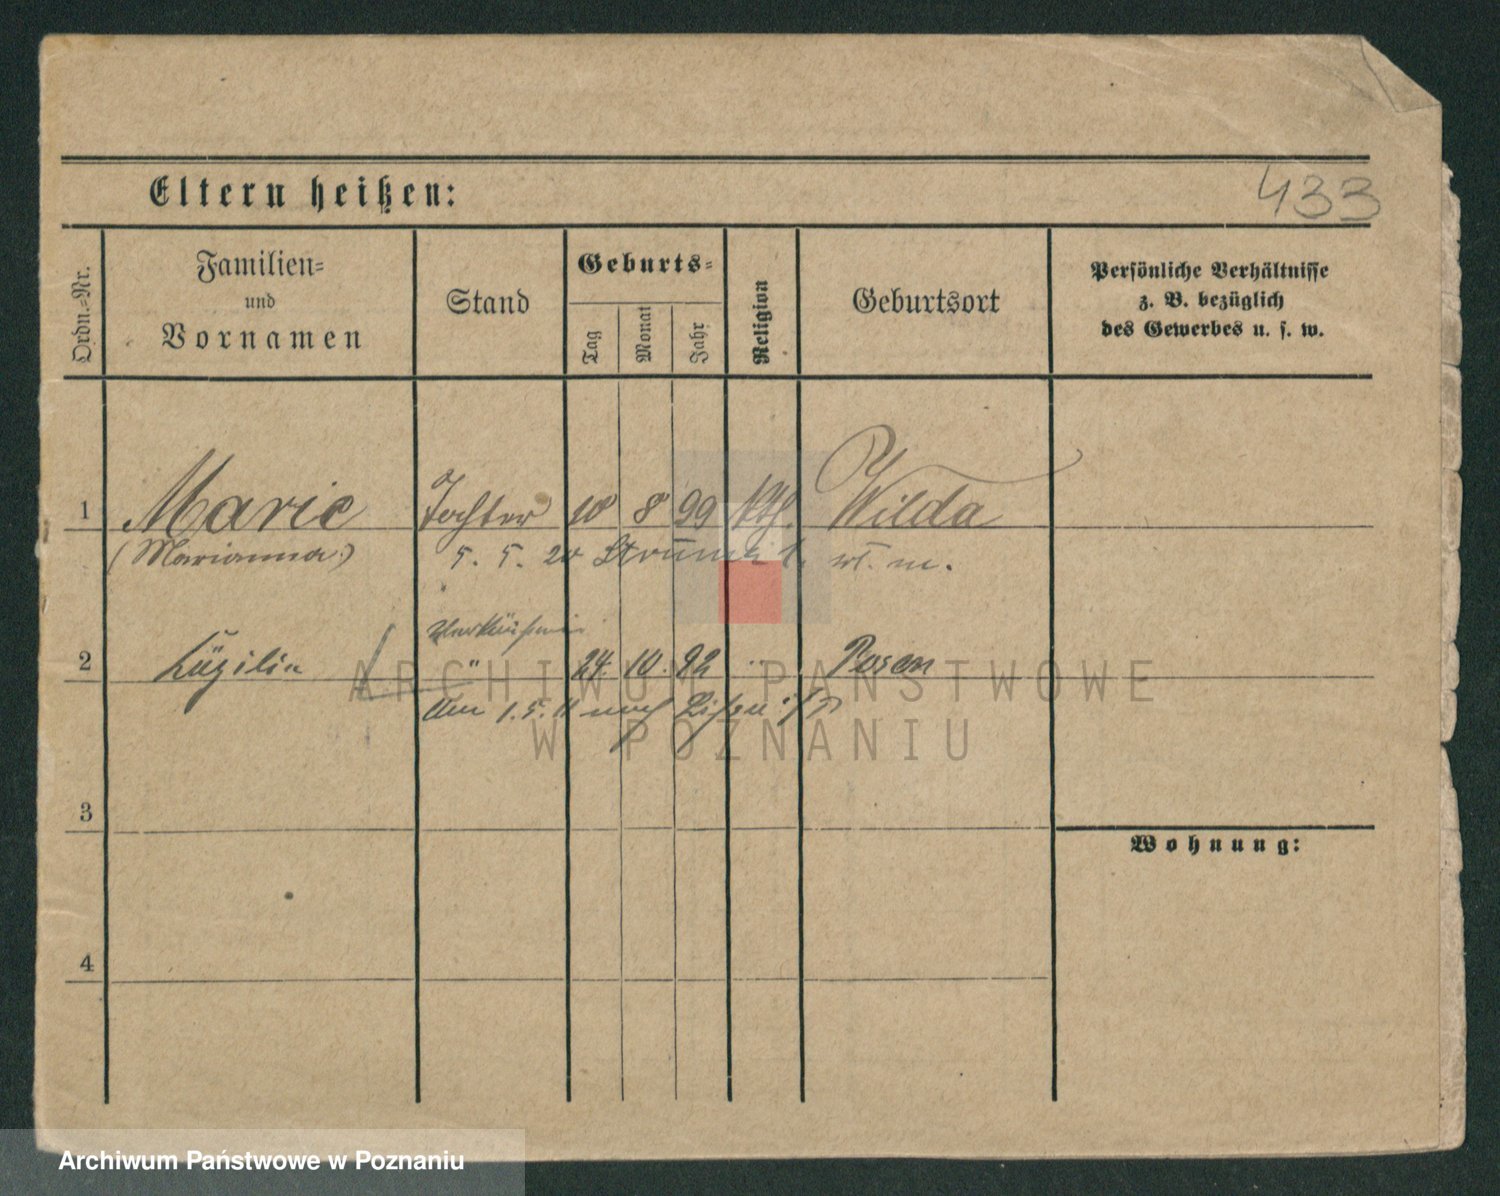 433
Eltern heißen:
Ordn.-Nr.
Familien-
und
Vornamen
Stand
Geburts-
Tag
Monat
Jahr
Religion
Geburtsort
Persönliche Verhältnisse
z. B. bezüglich
des Gewerbes u. s. w.
1 Marie Tochter 10 8 99 kth. Wilda
(Marianna) 5. 5. 20
Verkäuferin
2 24. 10. 92 Posen
Am 1. 5. 11 nach
3
Wohnung:
4
ARCHIWUM PAŃSTWOWE
W POZNANIU
Archiwum Państwowe w Poznaniu